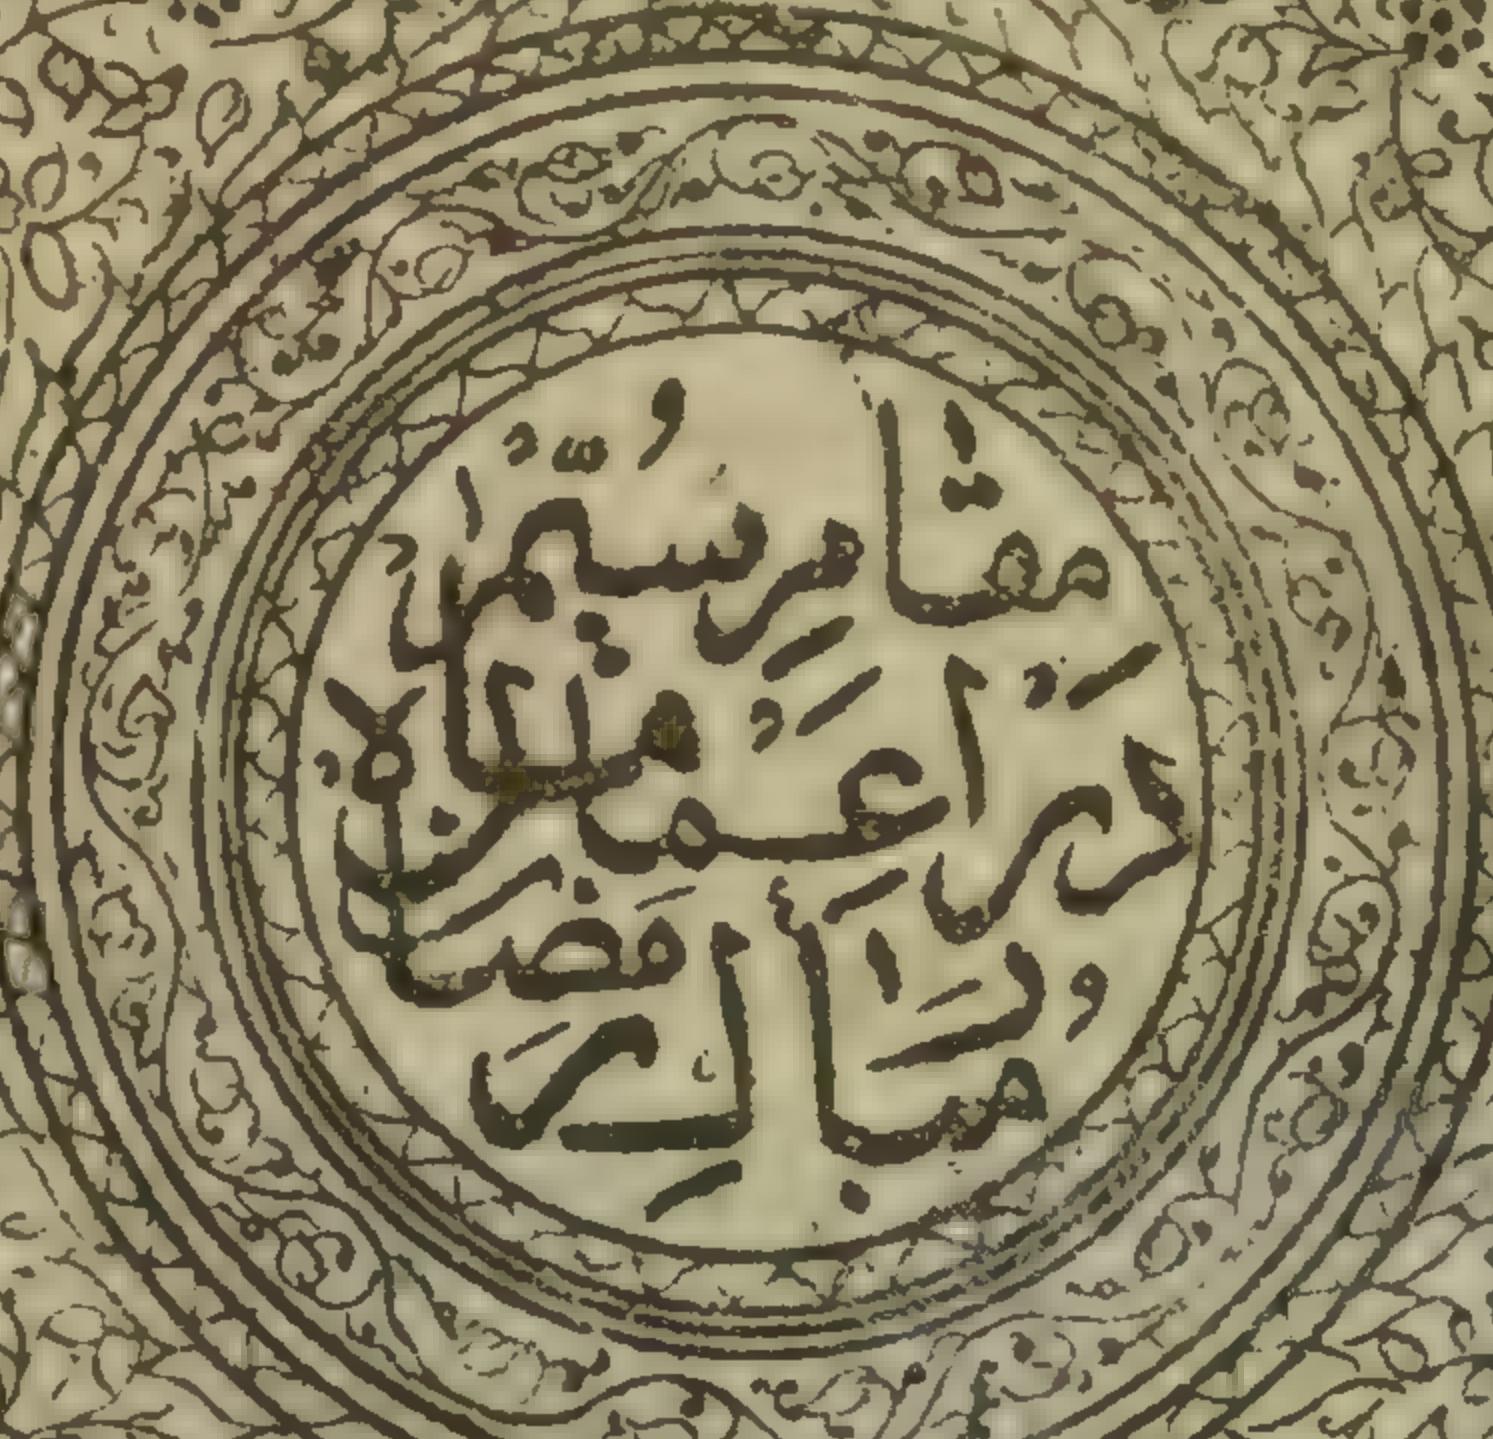 مقام سیُّم
در اعمال ماه
رمضان
مبارك